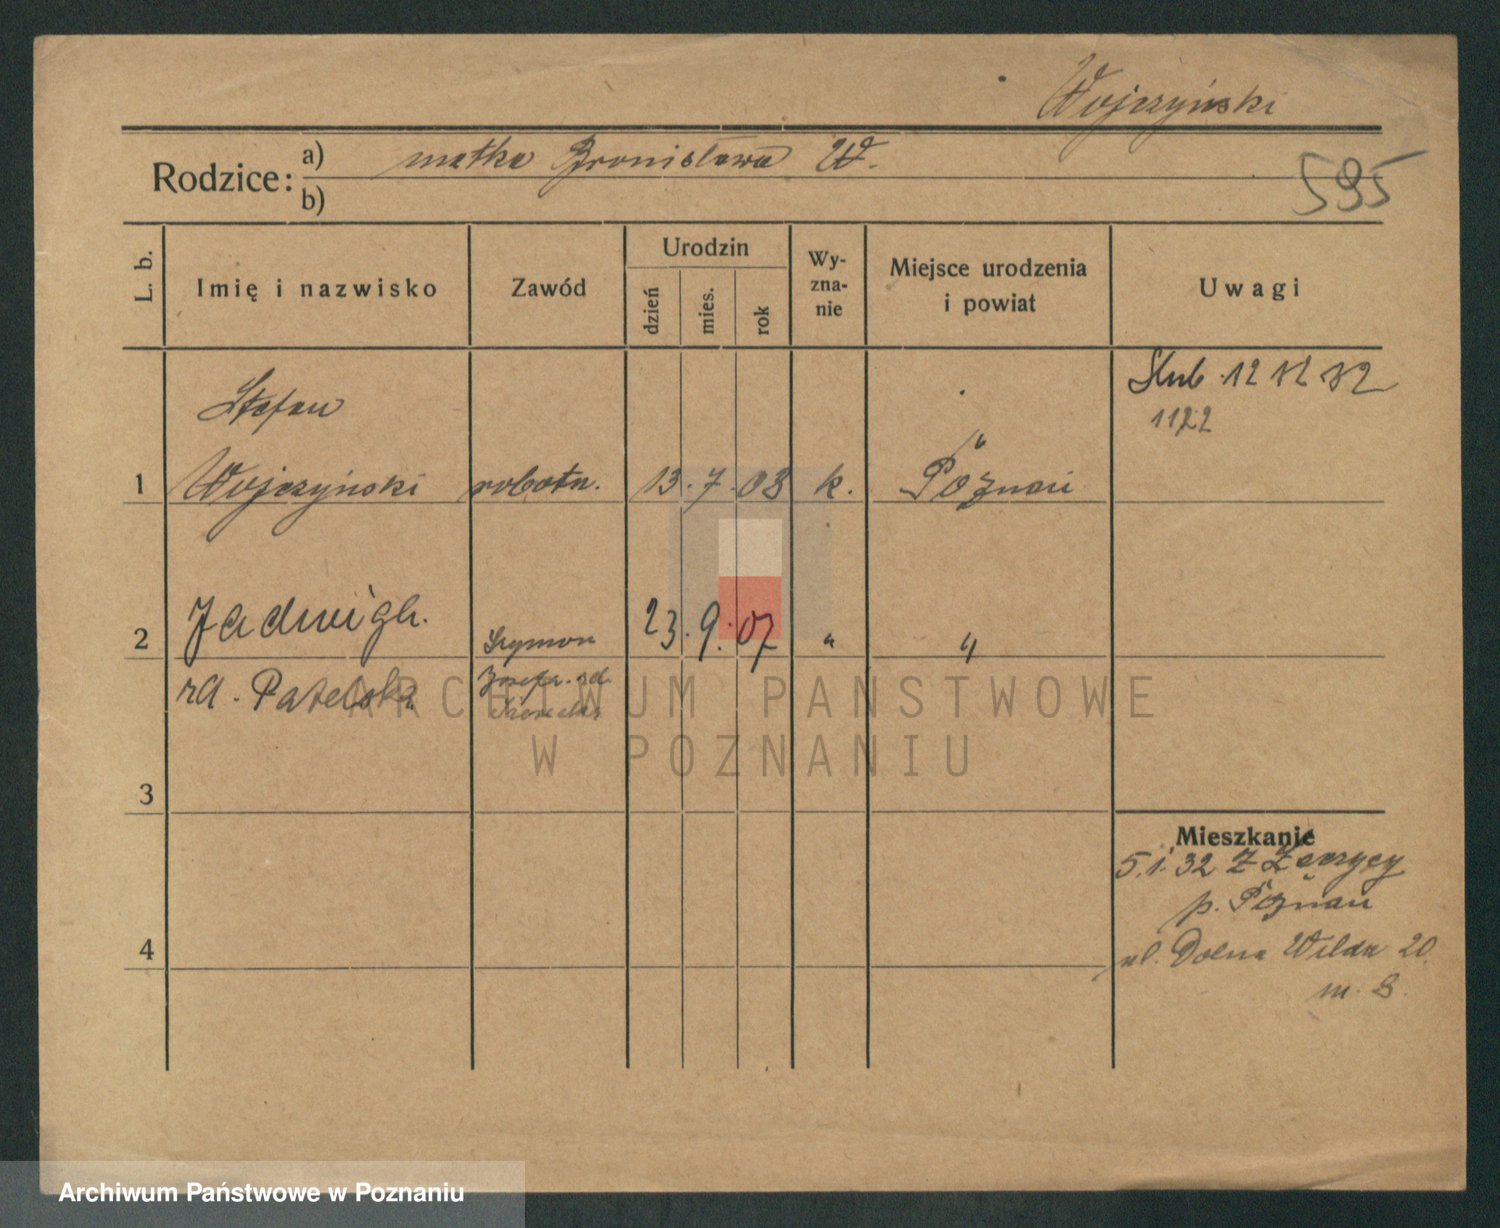 Wojczyński
Rodzice: a) matka Bronisława W.
b)
595
L. b.
Imię i nazwisko
Zawód
Urodzin
dzień
mies.
rok
Wy-
zna-
nie
Miejsce urodzenia
i powiat
Uwagi
Stefan
Ślub 12 12 32
1122
1 Wojczyński robotn. 13. 7. 03 k. Poznań
2 Jadwiga. Szymon 23. 9. 07 " "
rd. Józefa rd.
3
Mieszkanie
5.1.32 Z Żerzycy
p. Poznań
4
ul. Dolna Wilda 20.
m. 8.
ARCHIWUM PAŃSTWOWE
W POZNANIU
Archiwum Państwowe w Poznaniu